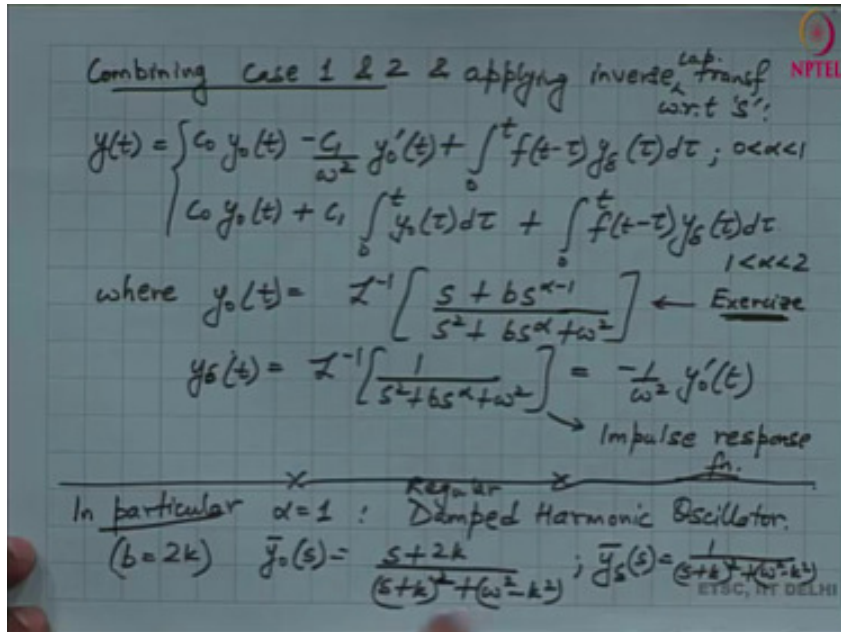 NPTEL
Combining case 1 & 2 & applying inverse lap. transf
w.r.t 's':
y(t) = { c₀ y₀(t) - c₁/ω² y₀'(t) + ∫₀ᵗ f(t-τ) y_δ(τ)dτ ; 0<α<1
c₀ y₀(t) + c₁ ∫₀ᵗ y₀(τ)dτ + ∫₀ᵗ f(t-τ) y_δ(τ)dτ
1<α<2
where y₀(t) = L⁻¹[ (s + bs^(α-1)) / (s² + bs^α + ω²) ] ← Exercize
y_δ(t) = L⁻¹[ 1 / (s² + bs^α + ω²) ] = -1/ω² y₀'(t)
→ Impulse response
fn.
In particular α=1 : Regular Damped Harmonic Oscillator.
(b=2k) ȳ₀(s) = (s+2k) / ((s+k)² + (ω²-k²)) ; ȳ_δ(s) = 1 / ((s+k)² + (ω²-k²))
ETSC, IIT DELHI